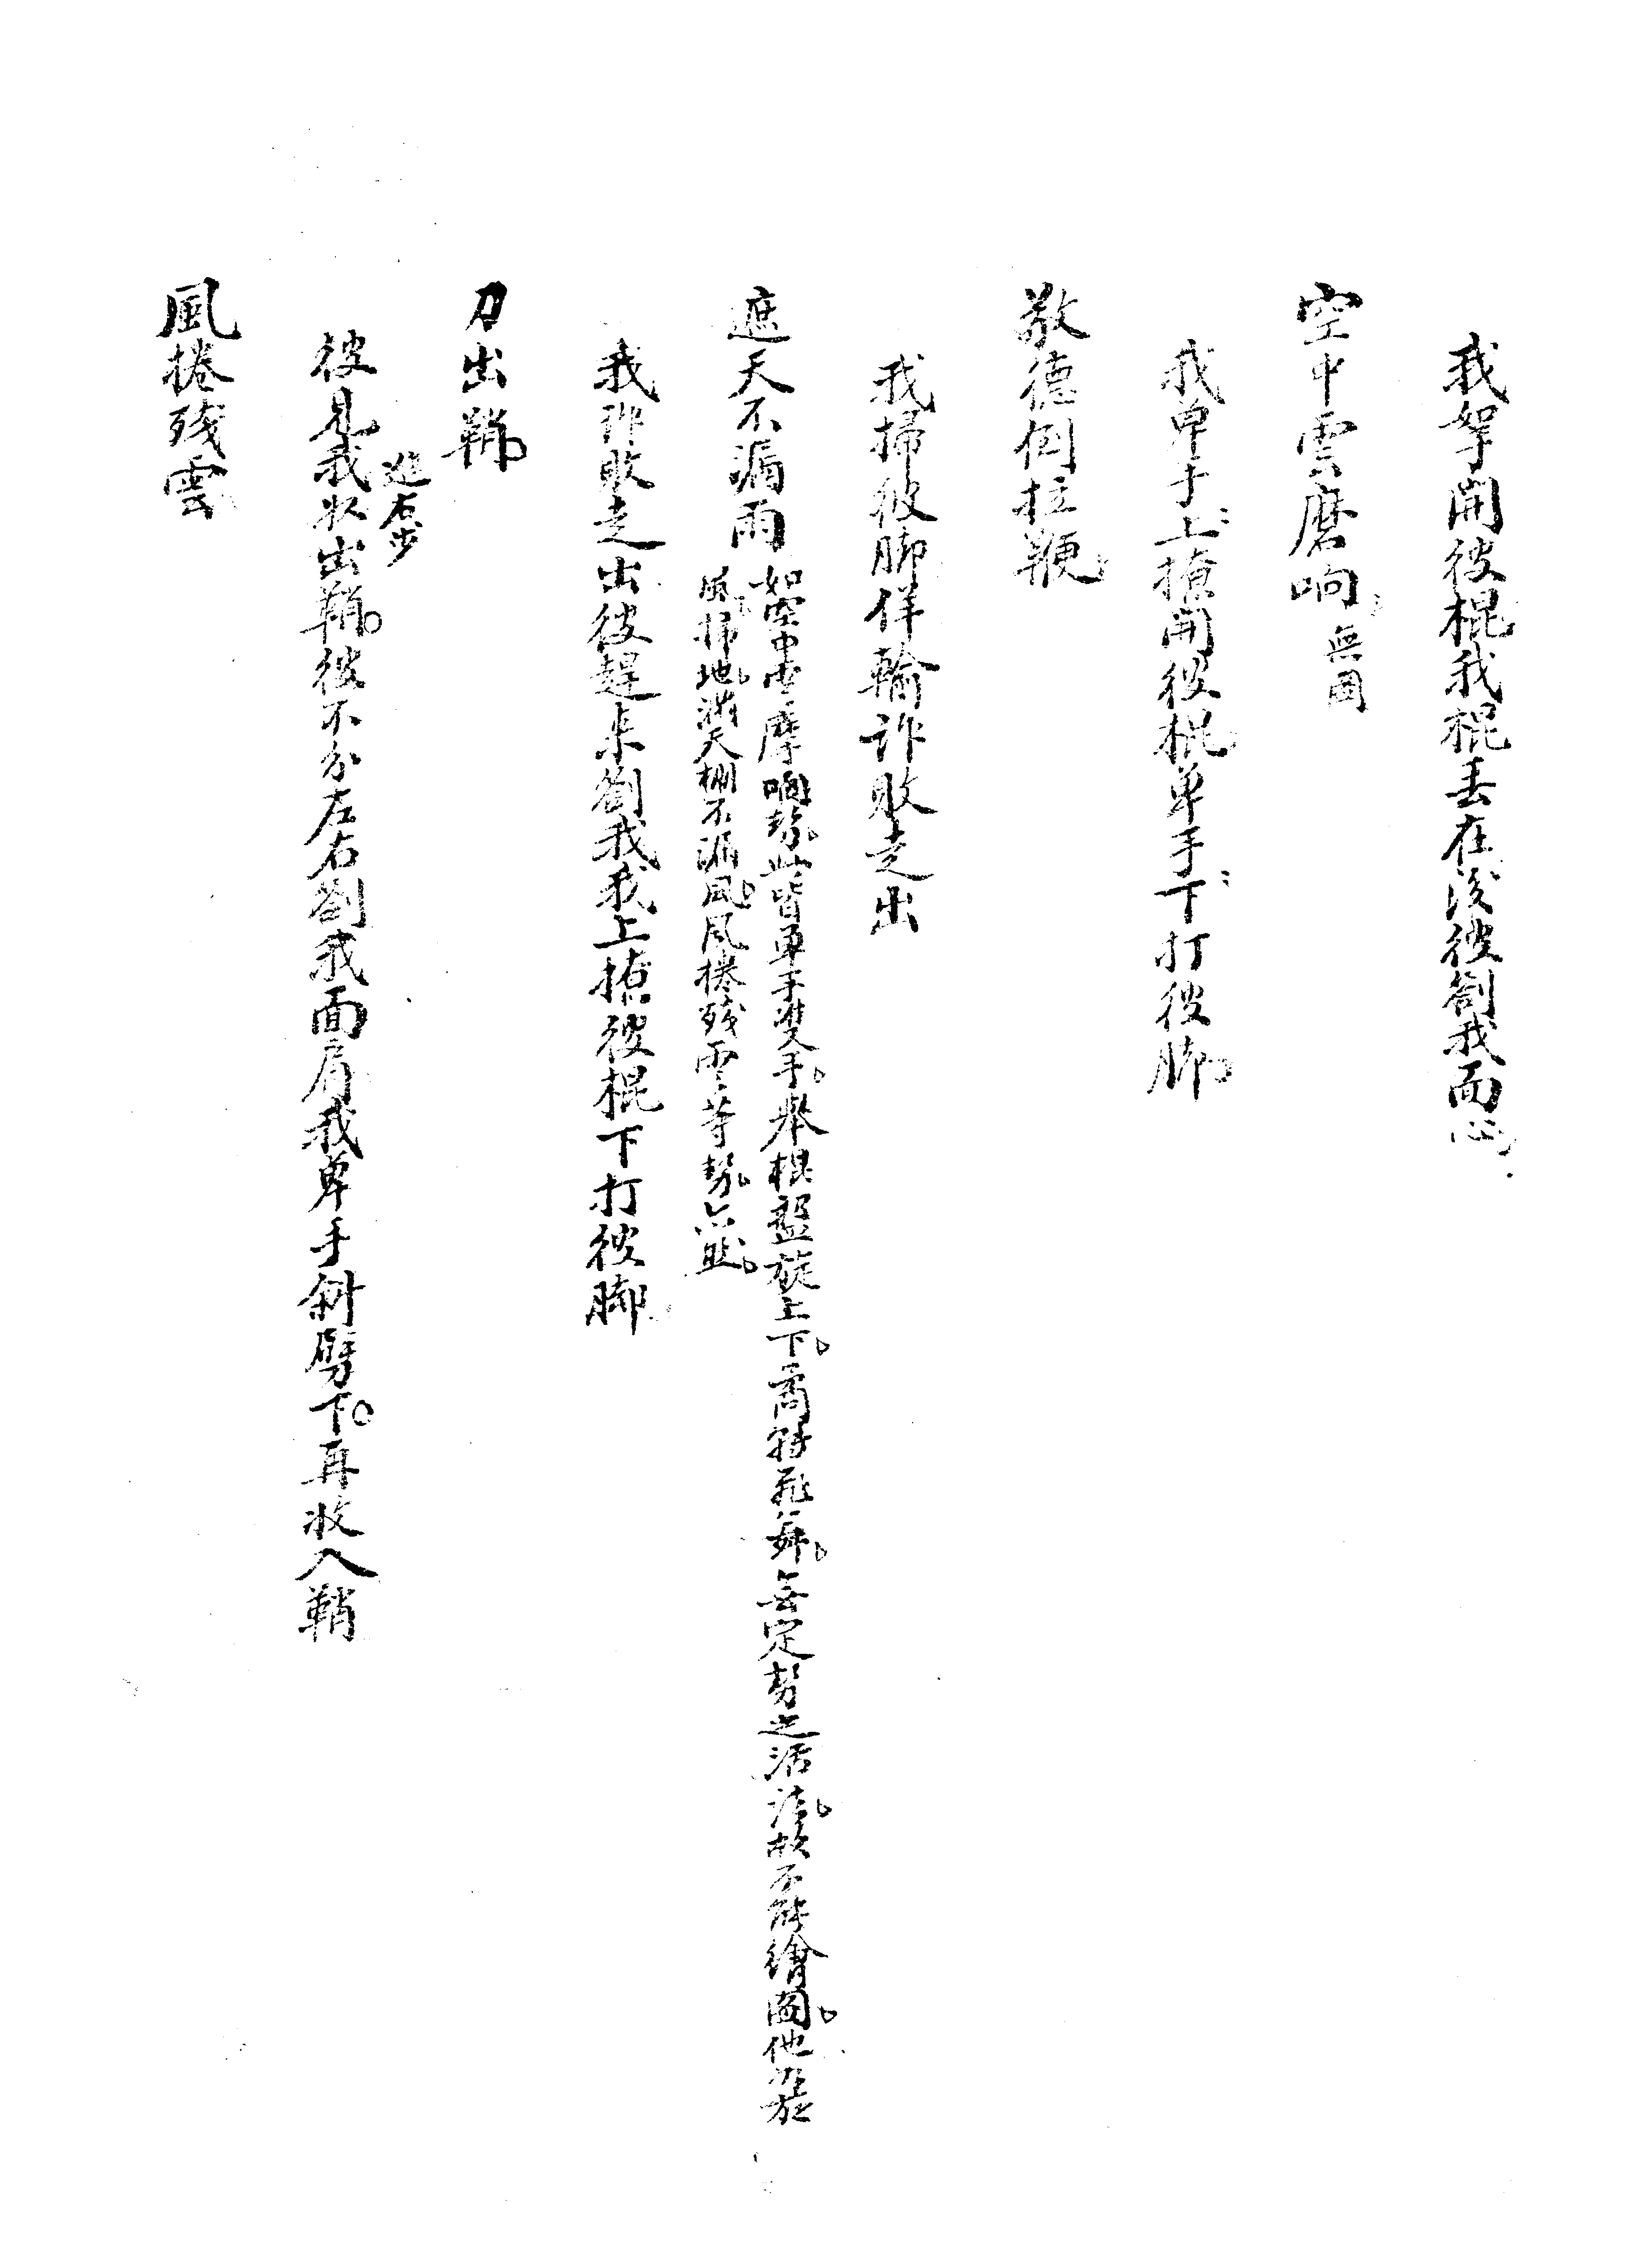 我拏開彼棍我棍丢在後彼劄我面心
空中雲磨响 無圖
我单手上撩開彼棍单手下打彼脚
敬德倒拉鞭
我掃彼脚佯輸詐敗走出
遮天不漏雨 如空中雲摩响势此皆单手雙手舉棍盤旋上下
無定势之活法故不能繪圖他如旋
風掃地满天棚不漏風風捲残雲等势亦然
我詐敗走出彼趕来劄我我上撩彼棍下打彼脚
刀出鞘
進右步
彼見我収出鞘彼不分左右劄我面肩我单手斜劈下再收入鞘
風捲残雲